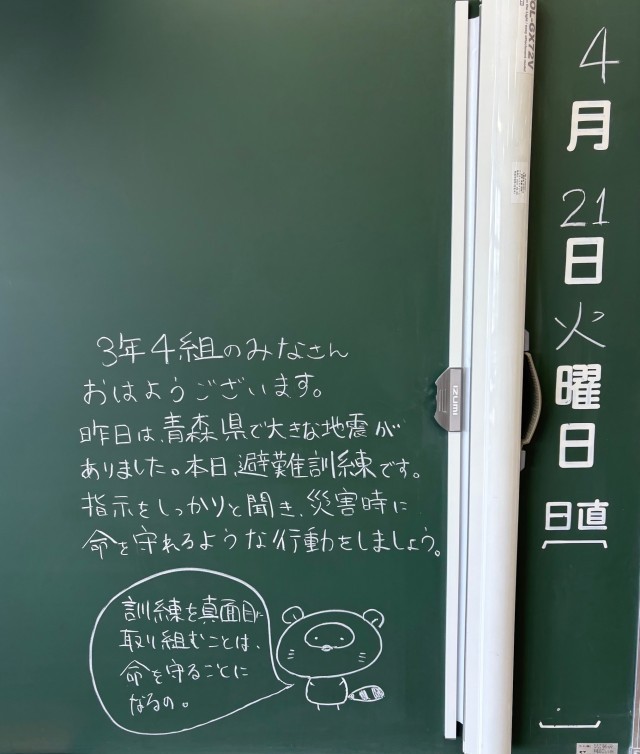 4月21日火曜日
日直
3年4組のみなさん
おはようございます。
昨日は、青森県で大きな地震が
ありました。本日、避難訓練です。
指示をしっかりと聞き、災害時に
命を守れるような行動をしましょう。
訓練を真面目に
取り組むことは、
命を守ることに
なるの。
IZUMI
OL-GX72V